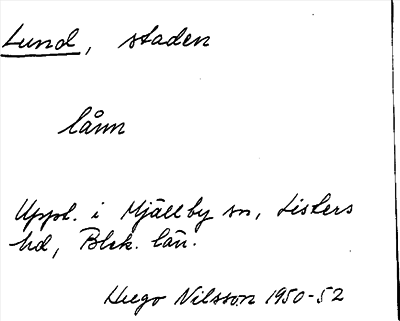 Lund, staden
lånn
Uppl. i Mjällby sn, Listers
hd, Blek. län.
Hugo Nilsson 1950-52